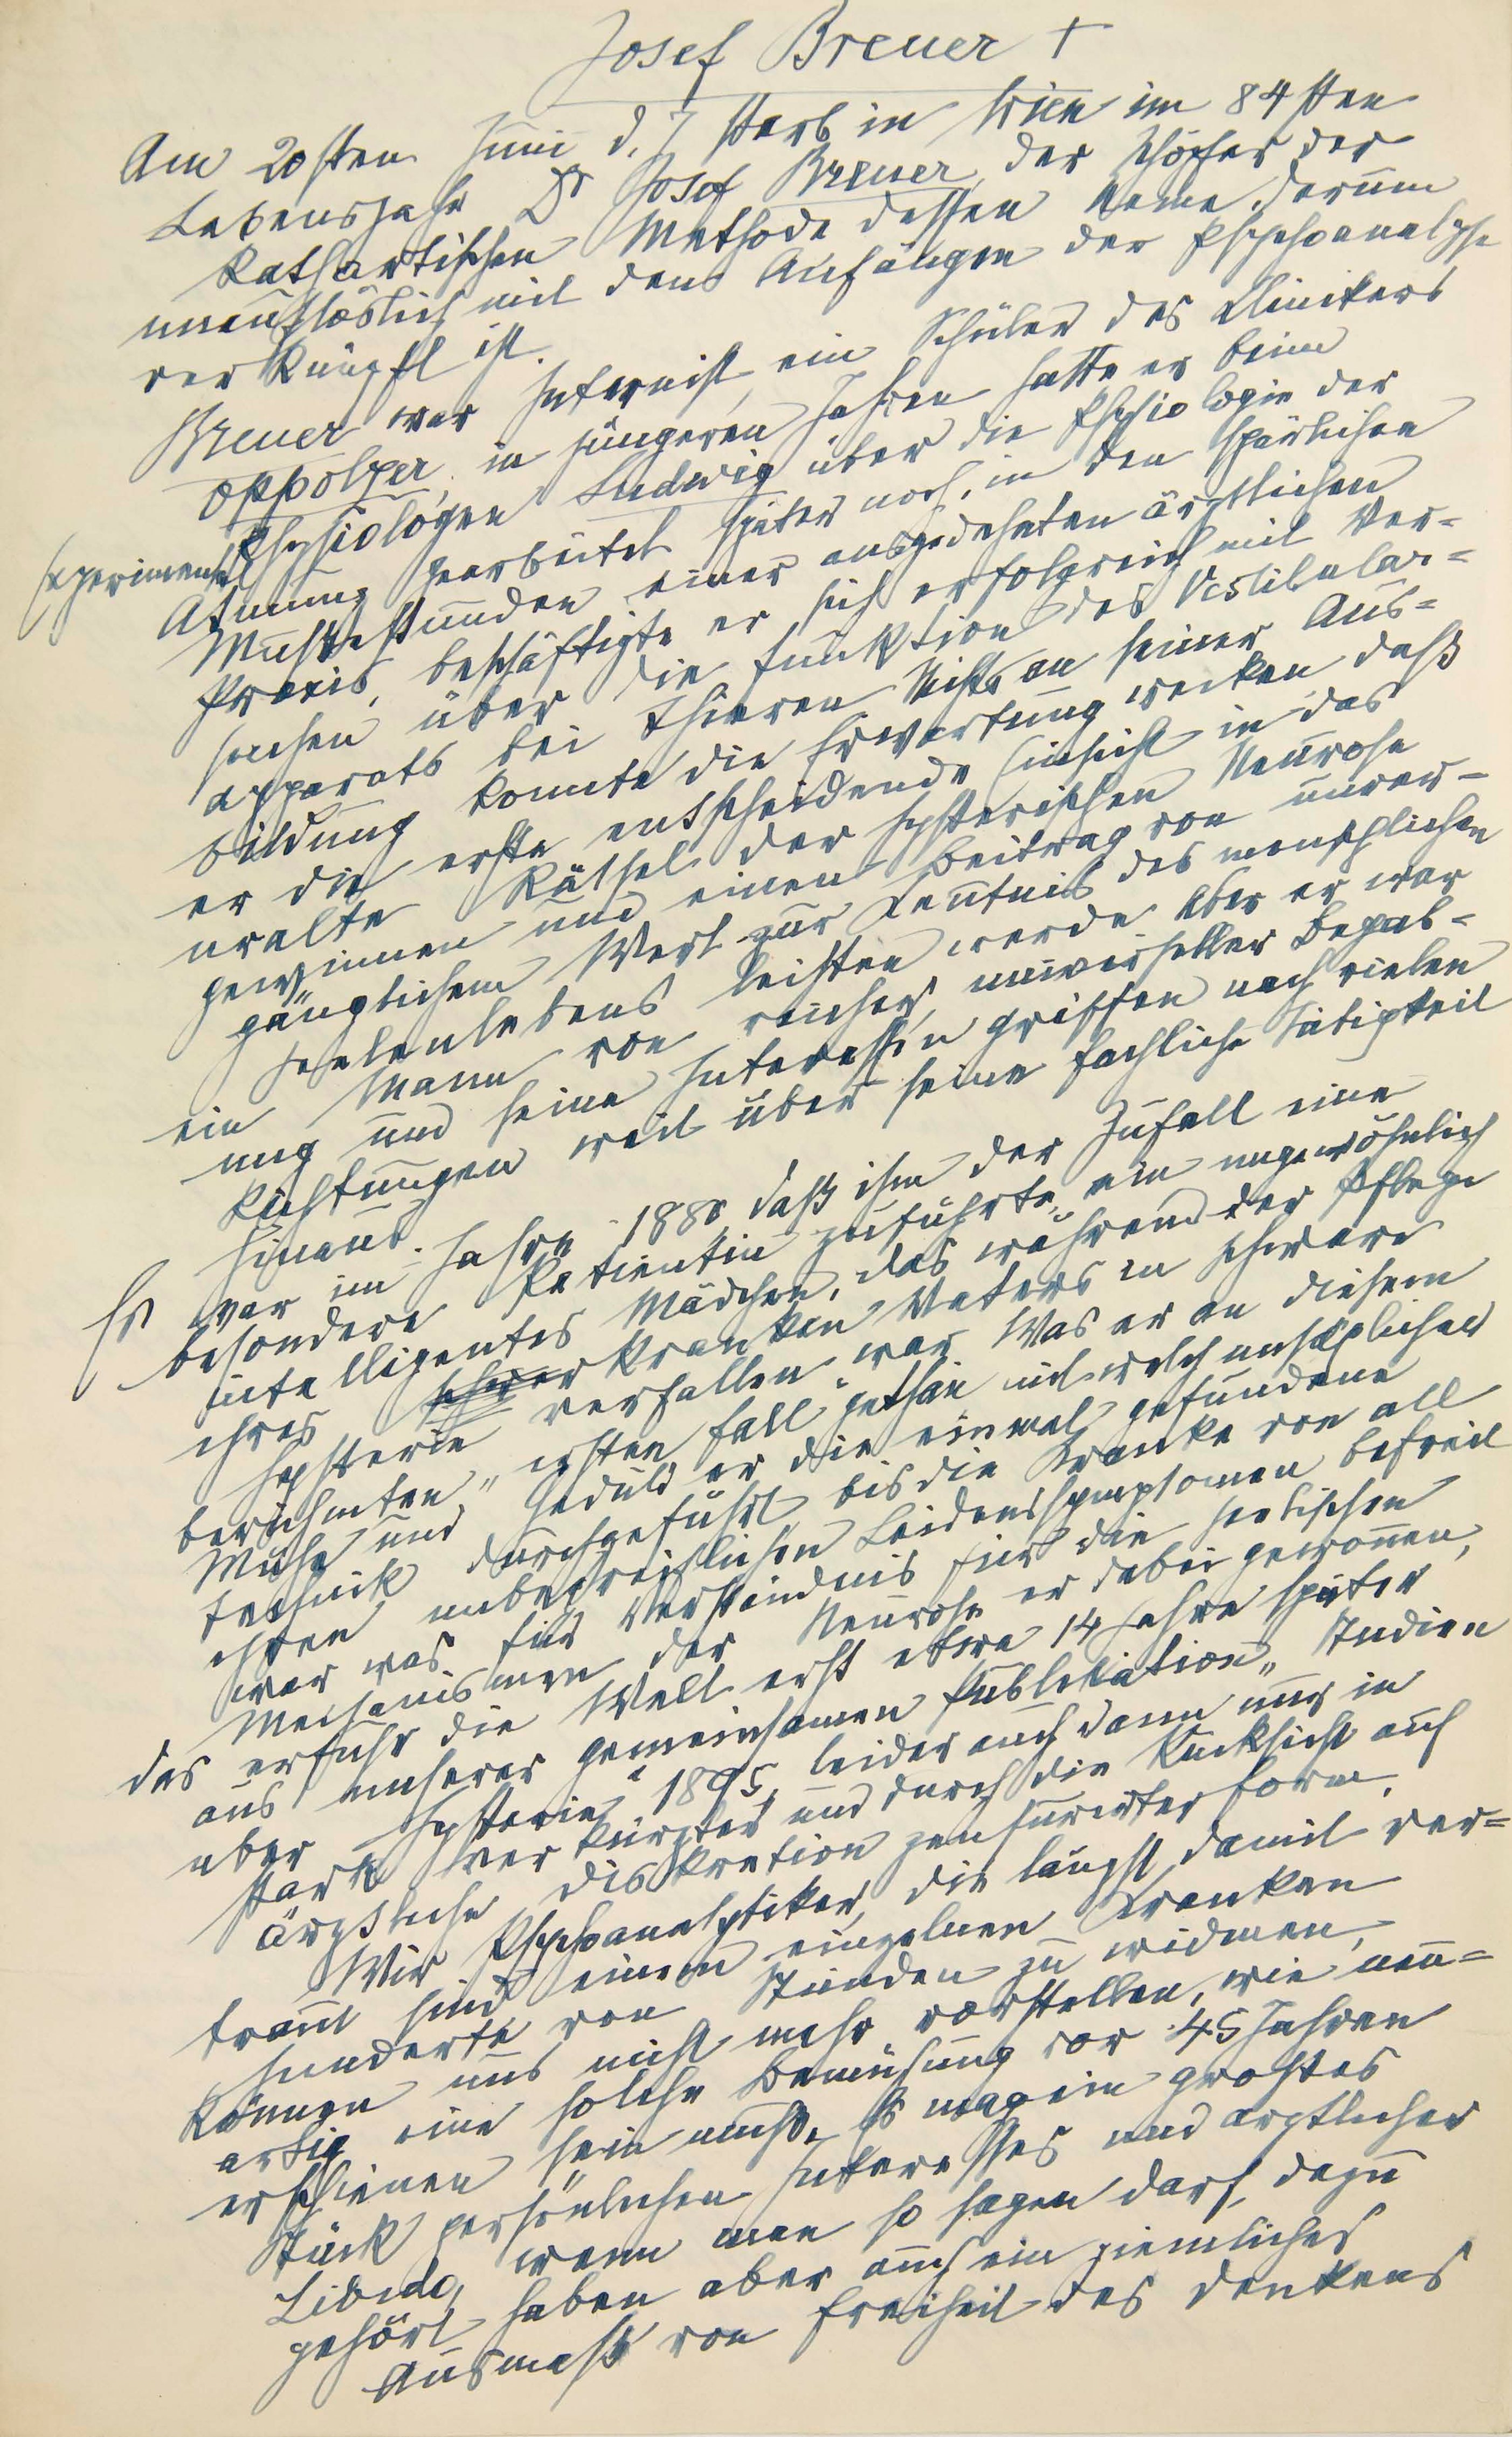 Josef Breuer †
Am 20sten Juni d. J. starb in Wien im 84sten
Lebensjahr Dr Josef Breuer, der Schöpfer der
kathartischen Methode dessen Name darum
unauflöslich mit den Anfängen der Psychoanalyse
verknüpft ist.
Breuer war Internist, ein Schüler des Klinikers
Oppolzer, in jüngeren Jahren hatte er beim
Physiologen Ludwig über die Physiologie der
Atmung gearbeitet später noch, in den spärlichen
Mußestunden einer ausgedehnten ärztlichen
Praxis, beschäftigte er sich erfolgreich mit Ver=
Experimental
suchen über die Funktion des Vestibular=
apparats bei Thieren Nichts an seiner Aus=
bildung konnte die Erwartung wecken daß
er die erste entscheidende Einsicht in das
uralte Rätsel der hysterischen Neurose
gewinnen und einen Beitrag von unver=
gänglichem Wert zur Kenntnis des menschlichen
Seelenlebens leisten werde. Aber er war
ein Mann von reicher, universeller Begab=
ung und seine Interessen griffen nach vielen
Richtungen weit über seine fachliche Tätigkeit
hinaus.
Es war im Jahre 1880, daß ihm der Zufall eine
besondere Patientin zuführte, ein ungewöhnlich
intelligentes Mädchen, das während der Pflege
ihres kranken Vaters in schwere
Hysterie verfallen war. Was er an diesem
berühmten „ersten Fall" gethan mit welch unsäglicher
Mühe und Geduld er die einmal gefundene
Technik durchgeführt, bis die Kranke von all
ihren unbegreiflichen Leidenssymptomen befreit
war was für Verständnis für die seelischen
Mechanismen der Neurose er dabei gewonnen,
das erfuhr die Welt erst etwa 14 Jahre später
aus unserer gemeinsamen Publikation „Studien
uber Hysterie" 1895, leider auch dann nur in
stark verkürzter und durch die Rücksicht auf
ärztliche Diskretion zensurierter Form.
Wir Psychoanalytiker, die längst damit ver=
traut sind einem einzelnen Kranken
hunderte von Stunden zu widmen,
können uns nicht mehr vorstellen, wie neu=
artig eine solche Bemühung vor 45 Jahren
erschienen sein muß. Es mag ein großes
Stück persönlichen Interesses und arztlicher
Libido, wenn man so sagen darf, dazu
gehört haben aber auch ein ziemliches
Ausmaß von Freiheit des Denkens